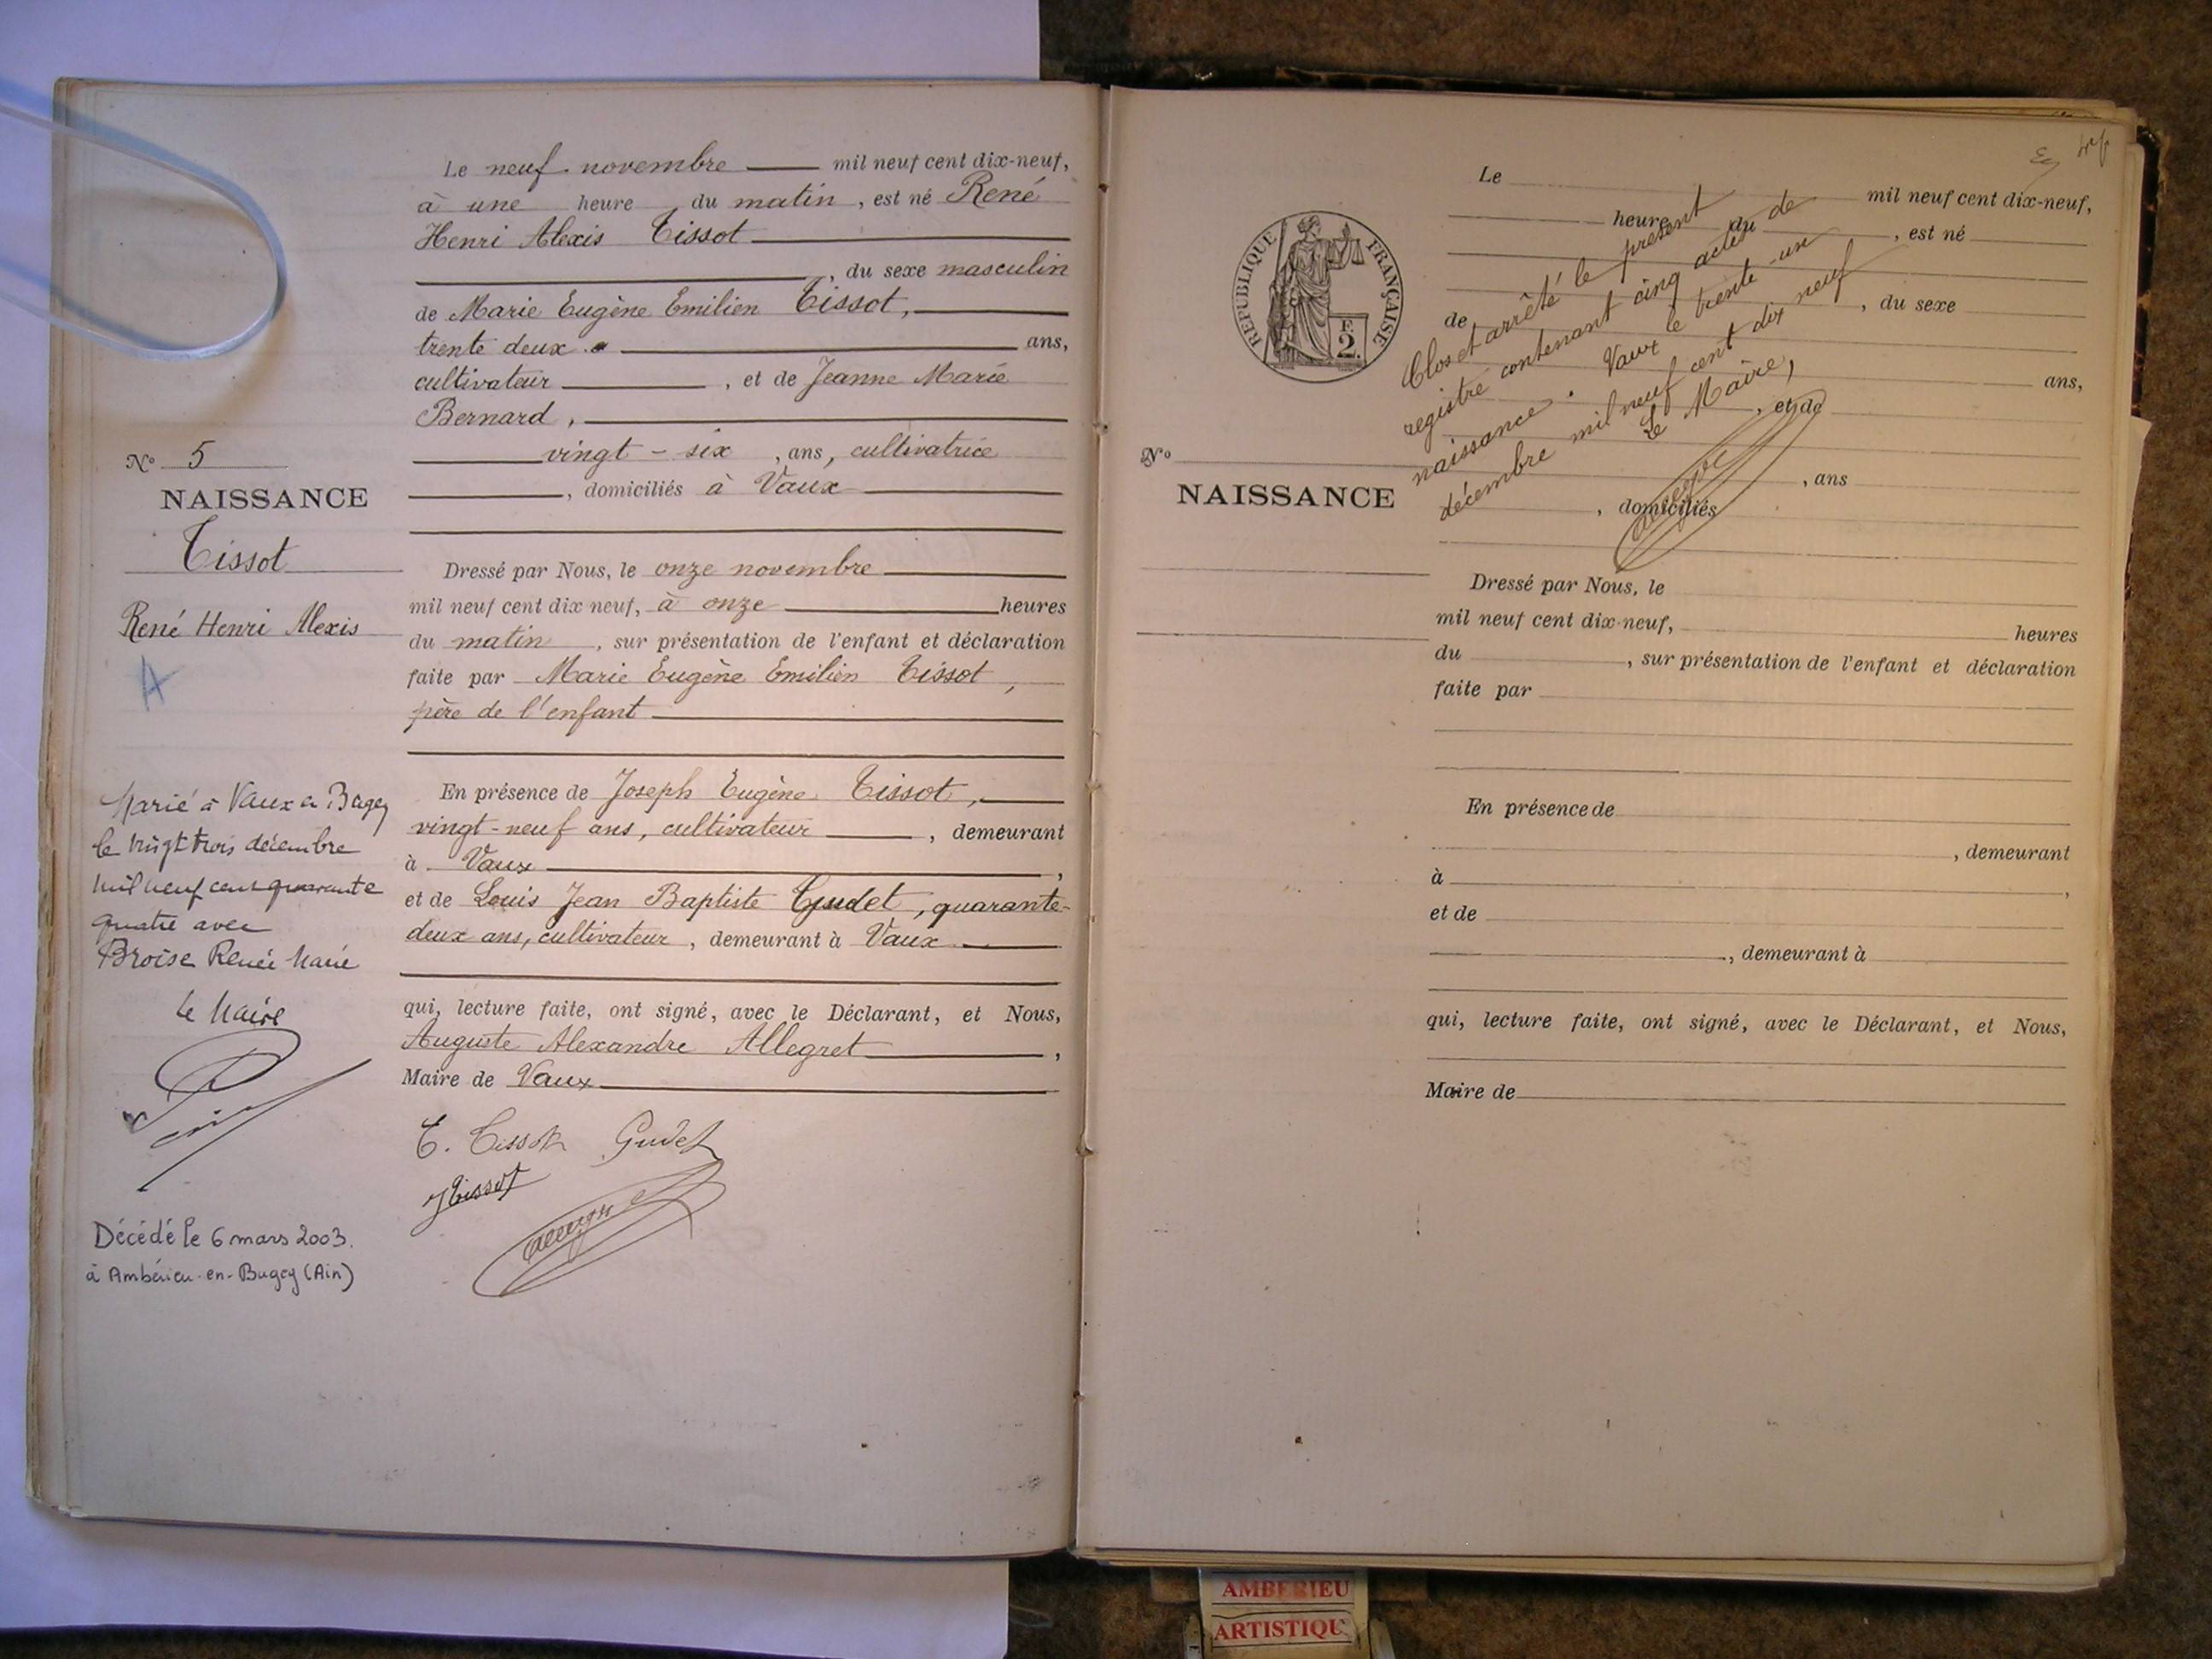 Le neuf novembre mil neuf cent dix-neuf,
à une heure du matin, est né René
Henri Alexis Tissot
, du sexe masculin
de Marie Eugène Emilien Tissot,
trente deux ans,
cultivateur, et de Jeanne Marie
Bernard,
vingt-six, ans, cultivatrice
, domiciliés à Vaux
Nº 5
NAISSANCE
Tissot
René Henri Alexis
A
Dressé par Nous, le onze novembre
mil neuf cent dix neuf, à onze heures
du matin, sur présentation de l'enfant et déclaration
faite par Marie Eugène Emilien Tissot,
père de l'enfant
En présence de Joseph Eugène Tissot,
vingt-neuf ans, cultivateur, demeurant
à Vaux,
et de Louis Jean Baptiste Gudet, quarante-
deux ans, cultivateur, demeurant à Vaux
qui, lecture faite, ont signé, avec le Déclarant, et Nous,
Auguste Alexandre Allegret,
Maire de Vaux
E. Tissot Gudet
JTissot
Marié à Vaux en Bugey
le vingt trois décembre
mil neuf cent quarante
quatre avec
Broise Renée Marie
Le Maire
Décédé le 6 mars 2003.
à Ambérieu-en-Bugey (Ain)
RÉPUBLIQUE FRANÇAISE
F.
2.
Le mil neuf cent dix-neuf,
heure du, est né
, du sexe
de
ans,
, et de
, ans
, domiciliés
Clos et arrêté le présent
registre contenant cinq actes de
naissance. Vaux le trente-un
décembre mil neuf cent dix neuf
Le Maire,
Nº
NAISSANCE
Dressé par Nous, le
mil neuf cent dix-neuf, heures
du, sur présentation de l'enfant et déclaration
faite par
En présence de
, demeurant
à,
et de
, demeurant à
qui, lecture faite, ont signé, avec le Déclarant, et Nous,
Maire de
AMBERIEU
ARTISTIQU